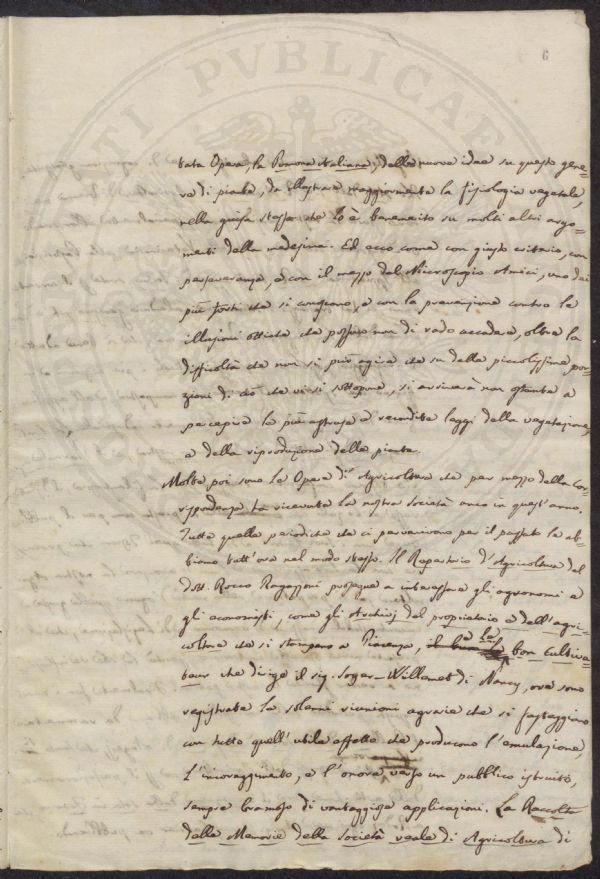 6
tata Opera, la Pomona italiana, delle nuove idee su questo gene-
re di piante, da illustrare maggiormente la fisiologia vegetale,
nella guisa stessa che Ei è benemerito su molti altri argo-
menti della medesima. Ed ecco come con giusto criterio, con
perseveranza, e con il mezzo del Microscopio Amici, uno dei
più forti che si conoscano, e con la prevenzione contro le
illusioni ottiche che possono non di rado accadere, oltre la
difficoltà che non si può agire che su delle piccolissime por-
zioni di ciò che vi si sottopone, si arriverà non ostante a
percepire le più astruse e recondite leggi della vegetazione,
e della riproduzione delle piante.
Molte poi sono le Opere di Agricoltura che per mezzo della cor-
rispondenza ha ricevute la nostra Società anco in quest'anno.
Tutte quelle periodiche che ci pervenivono per il passato le ab-
biamo tutt'ora nel modo stesso. Il Repertorio d'Agricoltura del
Dott. Rocco Ragazzoni prosegue a interessare gli agronomi e
gli economisti, come gli Archivj del proprietario e dell'agri-
coltore che si stampano a Piacenza, e le bon cultiva
teur che dirige il sig. Soyer-Willemet di Nancy, ove sono
registrate le solenni riunioni agrarie che si festeggiano
con tutto quell'utile effetto che producono l'emulazione,
l'incoraggimento, e l'onore verso un pubblico istruito,
sempre bramoso di vantaggiose applicazioni. La Raccolta
delle Memorie della Società reale di Agricoltura di